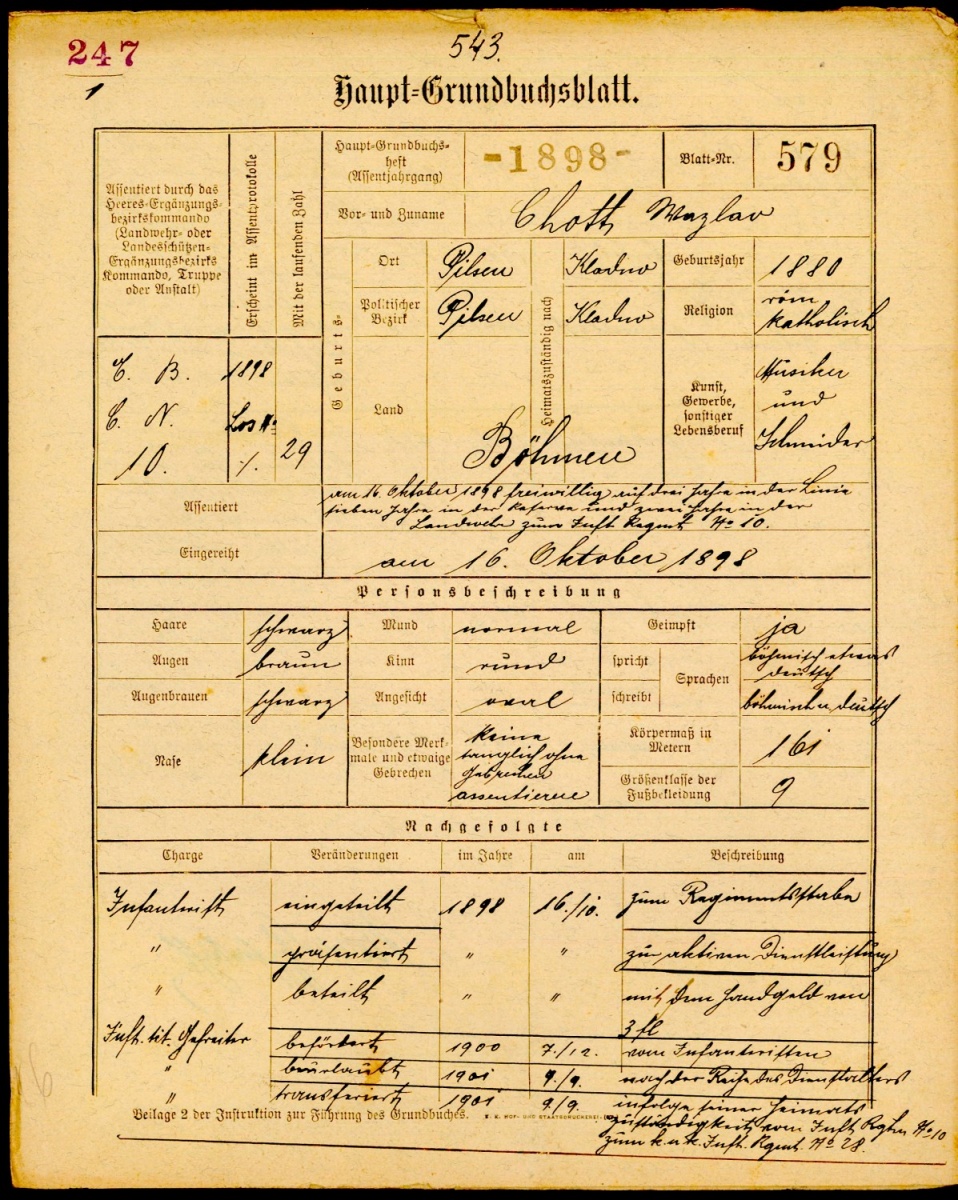 247
543.
1
Haupt-Grundbuchsblatt.
Assentiert durch das
Heeres-Ergänzungs-
bezirkskommando
(Landwehr- oder
Landesschützen-
Ergänzungsbezirks
Kommando, Truppe
oder Anstalt)
Erscheint im Assentprotokolle
Mit der laufenden Zahl
Haupt-Grundbuchs-
heft
(Assentjahrgang)
-1898-
Blatt-Nr.
579
Vor- und Zuname
Chott Wazlav
Geburts-
Ort
Pilsen
Heimatszuständig nach
Kladno
Geburtsjahr
1880
Politischer
Bezirk
Pilsen
Kladno
Religion
röm
katholisch
E. B.
1898
C. N.
Los №
10.
./.
29
Land
Böhmen
Kunst,
Gewerbe,
sonstiger
Lebensberuf
Musiker
und
Schneider
Assentiert
am 16. Oktober 1898 freiwillig auf drei Jahre in der Linie
sieben Jahre in der Reserve und zwei Jahre in der
Landwehr zum Inft Regmt № 10.
Eingereiht
am 16. Oktober 1898
Personsbeschreibung
Haare
schwarz
Mund
normal
Geimpft
ja
Augen
braun
Kinn
rund
spricht
Sprachen
böhmisch etwas
deutsch
Augenbrauen
schwarz
Angesicht
oval
schreibt
böhmisch u. deutsch
Nase
klein
Besondere Merk-
male und etwaige
Gebrechen
Keine
tauglich ohne
Gebrechen
assentieren
Körpermaß in
Metern
161
Größenklasse der
Fußbekleidung
9
Nachgefolgte
Charge
Veränderungen
im Jahre
am
Beschreibung
Infanterist
eingeteilt
1898
16./10.
zum Regimentsstabe
"
präsentiert
"
"
zur aktiven Dienstleistung
"
beteilt
"
"
mit dem Handgeld von
3 fl
Inft. tit. Gefreiter
befördert
1900
7./12.
vom Infanteristen
"
beurlaubt
1901
9./9.
nach der Reihe des Dienstalters
"
transferiert
1901
9./9.
infolge seiner Heimats
zuständigkeit vom Inft Rgtm № 10
zum k. u. k. Inft. Rgmt. № 28.
Beilage 2 der Instruktion zur Führung des Grundbuches.
K. K. HOF- UND STAATSDRUCKEREI.